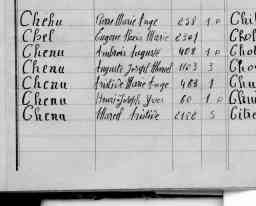 Chehu Pierre Marie Ange 258 1 D Chil
Chel Eugène Pierre Marie 2301 Chol
Chenu Ambrois Auguste 408 1 D Chot
Chenu Auguste Joseph Marcel 1163 3 Cho
Chenu Aristide Marie Ange 483 1 Chu
Chenu Henri Joseph Yves 60 1 D
Chenu Marcel Aristide 2182 S